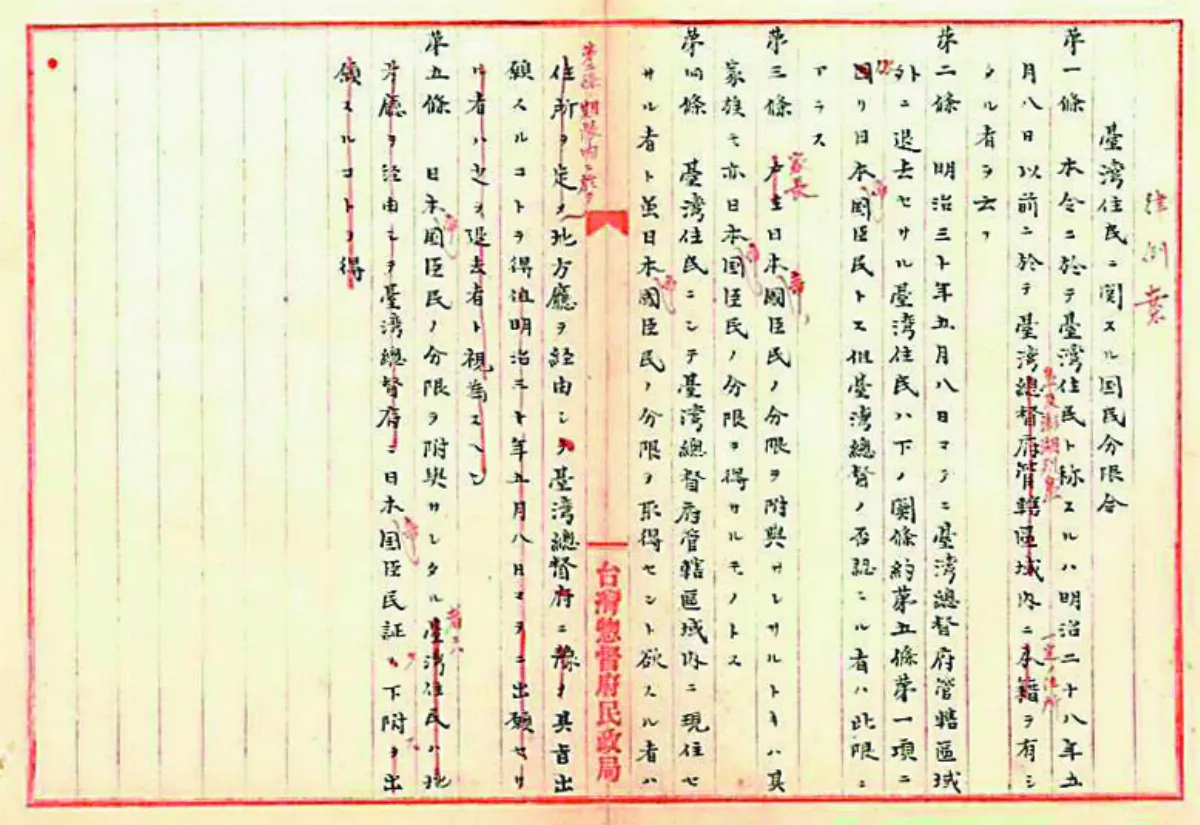 律例案
臺湾住民ニ関スル国民分限令
第一條 本令ニ於テ臺湾住民ト称スルハ明治二十八年五
月八日以前ニ於テ臺湾總督府管轄區域内ニ本籍ヲ有シ
タル者ヲ云フ
第二條 明治三十年五月八日マテニ臺湾總督府管轄區域
外ニ退去セサル臺湾住民ハ下ノ関條約第五條第一項ニ
因リ日本國臣民トス但臺湾總督ノ否認シタル者ハ此限ニ
アラス
家長
第三條 戸主日本國臣民ノ分限ヲ附與サレサルトキハ其
家族モ亦日本国臣民ノ分限ヲ得サルモノトス
第四條 臺湾住民ニシテ臺湾總督府管轄區域内ニ現住セ
サル者ト虽日本國臣民ノ分限ヲ取得セント欲スル者ハ
台灣總督府民政局
住所ヲ定メ地方廳ヲ経由シテ臺湾總督府ニ豫メ其旨出
願スルコトヲ得但明治三十年五月八日マテニ出願セサ
ル者ハ之ヲ退去者ト視為スヘシ
第五條 日本国臣民ノ分限ヲ附與サレタル臺湾住民ハ地
方廳ヲ経由シテ臺湾總督府ニ日本国臣民証ノ下附ヲ出
願スルコトヲ得